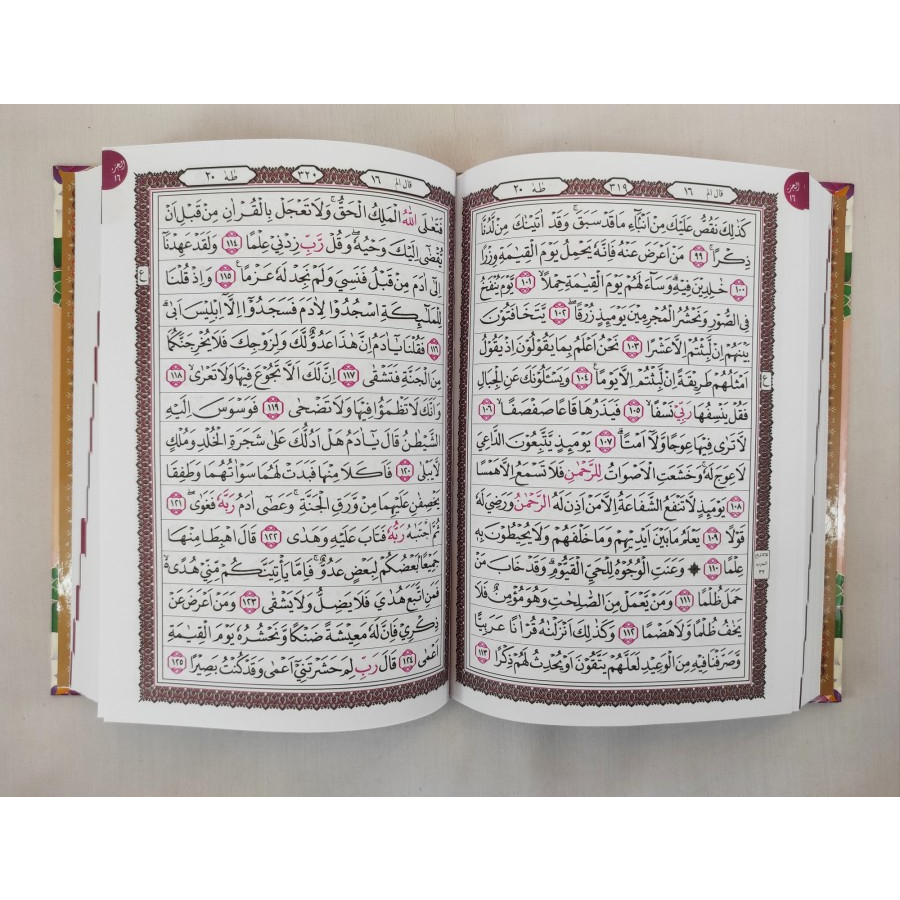 الجزء ١٦
قال الم ١٦ ٣١٩ طٰهٰ ٢٠
كَذٰلِكَ نَقُصُّ عَلَيْكَ مِنْ اَنْۢبَاۤءِ مَا قَدْ سَبَقَۚ وَقَدْ اٰتَيْنٰكَ مِنْ لَّدُنَّا
ذِكْرًاۚ ٩٩ مَنْ اَعْرَضَ عَنْهُ فَاِنَّهٗ يَحْمِلُ يَوْمَ الْقِيٰمَةِ وِزْرًا
١٠٠ خٰلِدِيْنَ فِيْهِۗ وَسَاۤءَ لَهُمْ يَوْمَ الْقِيٰمَةِ حِمْلًاۙ ١٠١ يَّوْمَ يُنْفَخُ
فِى الصُّوْرِ وَنَحْشُرُ الْمُجْرِمِيْنَ يَوْمَىِٕذٍ زُرْقًاۖ ١٠٢ يَّتَخَافَتُوْنَ
بَيْنَهُمْ اِنْ لَّبِثْتُمْ اِلَّا عَشْرًا ١٠٣ نَحْنُ اَعْلَمُ بِمَا يَقُوْلُوْنَ اِذْ يَقُوْلُ
اَمْثَلُهُمْ طَرِيْقَةً اِنْ لَّبِثْتُمْ اِلَّا يَوْمًا ࣖ ١٠٤ وَيَسْـَٔلُوْنَكَ عَنِ الْجِبَالِ
فَقُلْ يَنْسِفُهَا رَبِّيْ نَسْفًاۙ ١٠٥ فَيَذَرُهَا قَاعًا صَفْصَفًاۙ ١٠٦
لَّا تَرٰى فِيْهَا عِوَجًا وَّلَآ اَمْتًاۗ ١٠٧ يَوْمَىِٕذٍ يَّتَّبِعُوْنَ الدَّاعِيَ
لَا عِوَجَ لَهٗۚ وَخَشَعَتِ الْاَصْوَاتُ لِلرَّحْمٰنِ فَلَا تَسْمَعُ اِلَّا هَمْسًا
١٠٨ يَوْمَىِٕذٍ لَّا تَنْفَعُ الشَّفَاعَةُ اِلَّا مَنْ اَذِنَ لَهُ الرَّحْمٰنُ وَرَضِيَ لَهٗ
قَوْلًا ١٠٩ يَعْلَمُ مَا بَيْنَ اَيْدِيْهِمْ وَمَا خَلْفَهُمْ وَلَا يُحِيْطُوْنَ بِهٖ
عِلْمًا ١١٠ ۞ وَعَنَتِ الْوُجُوْهُ لِلْحَيِّ الْقَيُّوْمِۗ وَقَدْ خَابَ مَنْ
حَمَلَ ظُلْمًا ١١١ وَمَنْ يَّعْمَلْ مِنَ الصّٰلِحٰتِ وَهُوَ مُؤْمِنٌ فَلَا
يَخٰفُ ظُلْمًا وَّلَا هَضْمًا ١١٢ وَكَذٰلِكَ اَنْزَلْنٰهُ قُرْاٰنًا عَرَبِيًّا
وَّصَرَّفْنَا فِيْهِ مِنَ الْوَعِيْدِ لَعَلَّهُمْ يَتَّقُوْنَ اَوْ يُحْدِثُ لَهُمْ ذِكْرًا ١١٣
ع
الجزء ١٦
قال الم ١٦ ٣٢٠ طٰهٰ ٢٠
فَتَعٰلَى اللّٰهُ الْمَلِكُ الْحَقُّۚ وَلَا تَعْجَلْ بِالْقُرْاٰنِ مِنْ قَبْلِ اَنْ
يُّقْضٰٓى اِلَيْكَ وَحْيُهٗۖ وَقُلْ رَّبِّ زِدْنِيْ عِلْمًا ١١٤ وَلَقَدْ عَهِدْنَآ
اِلٰٓى اٰدَمَ مِنْ قَبْلُ فَنَسِيَ وَلَمْ نَجِدْ لَهٗ عَزْمًا ࣖ ١١٥ وَاِذْ قُلْنَا
لِلْمَلٰۤىِٕكَةِ اسْجُدُوْا لِاٰدَمَ فَسَجَدُوْٓا اِلَّآ اِبْلِيْسَ اَبٰىۗ
١١٦ فَقُلْنَا يٰٓاٰدَمُ اِنَّ هٰذَا عَدُوٌّ لَّكَ وَلِزَوْجِكَ فَلَا يُخْرِجَنَّكُمَا
مِنَ الْجَنَّةِ فَتَشْقٰى ١١٧ اِنَّ لَكَ اَلَّا تَجُوْعَ فِيْهَا وَلَا تَعْرٰىۙ ١١٨
وَاَنَّكَ لَا تَظْمَؤُا فِيْهَا وَلَا تَضْحٰى ١١٩ فَوَسْوَسَ اِلَيْهِ
الشَّيْطٰنُ قَالَ يٰٓاٰدَمُ هَلْ اَدُلُّكَ عَلٰى شَجَرَةِ الْخُلْدِ وَمُلْكٍ
لَّا يَبْلٰى ١٢٠ فَاَكَلَا مِنْهَا فَبَدَتْ لَهُمَا سَوْاٰتُهُمَا وَطَفِقَا
يَخْصِفٰنِ عَلَيْهِمَا مِنْ وَّرَقِ الْجَنَّةِۚ وَعَصٰٓى اٰدَمُ رَبَّهٗ فَغَوٰىۖ ١٢١
ثُمَّ اجْتَبٰىهُ رَبُّهٗ فَتَابَ عَلَيْهِ وَهَدٰى ١٢٢ قَالَ اهْبِطَا مِنْهَا
جَمِيْعًاۢ بَعْضُكُمْ لِبَعْضٍ عَدُوٌّۚ فَاِمَّا يَأْتِيَنَّكُمْ مِّنِّيْ هُدًى ەۙ
فَمَنِ اتَّبَعَ هُدَايَ فَلَا يَضِلُّ وَلَا يَشْقٰى ١٢٣ وَمَنْ اَعْرَضَ عَنْ
ذِكْرِيْ فَاِنَّ لَهٗ مَعِيْشَةً ضَنْكًا وَّنَحْشُرُهٗ يَوْمَ الْقِيٰمَةِ
اَعْمٰى ١٢٤ قَالَ رَبِّ لِمَ حَشَرْتَنِيْٓ اَعْمٰى وَقَدْ كُنْتُ بَصِيْرًا ١٢٥
ع